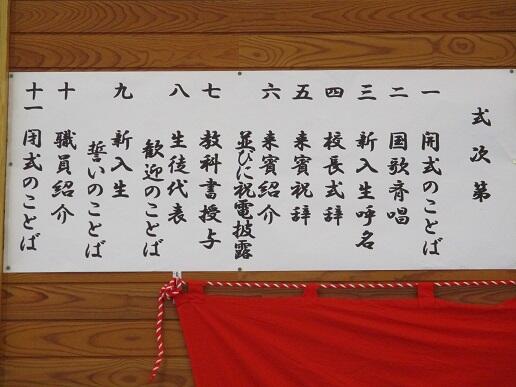 式次第
一 開式のことば
二 国歌斉唱
三 新入生呼名
四 校長式辞
五 来賓祝辞
六 来賓紹介
並びに祝電披露
七 教科書授与
八 生徒代表
歓迎のことば
九 新入生
誓いのことば
十 職員紹介
十一 閉式のことば